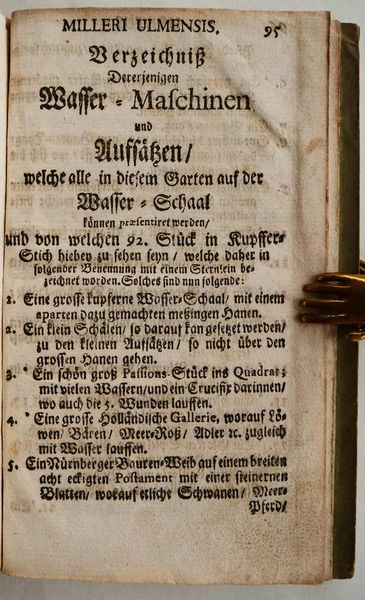 MILLERI ULMENSIS. 95
Verzeichniß
Dererjenigen
Wasser-Maschinen
und
Aufsätzen/
welche alle in diesem Garten auf der
Wasser-Schaal
können præsentiret werden/
und von welchen 92. Stück in Kupffer-
Stich hiebey zu sehen seyn / welche daher in
folgender Benennung mit einem Sternlein be-
zeichnet worden. Solches sind nun folgende:
1. Eine grosse kupferne Wasser-Schaal/ mit einem
aparten dazu gemachten meßingen Hanen.
2. Ein klein Schälen/ so darauf kan gesetzet werden/
zu den kleinen Aufsätzen/ so nicht über den
grossen Hanen gehen.
3. * Ein schön groß Passions-Stück ins Quadrat;
mit vielen Wassern/ und ein Crucifix darinnen/
wo auch die 5. Wunden lauffen.
4. * Eine grosse Holländische Gallerie, worauf Lö-
wen/ Bären / Meer-Roß/ Adler ꝛc. zugleich
mit Wasser lauffen.
5. Ein Nürnberger Bauren-Weib auf einem breiten
acht eckigten Postament mit einer steinernen
Blatten/ worauf etliche Schwanen/ Meer-
Pferd/